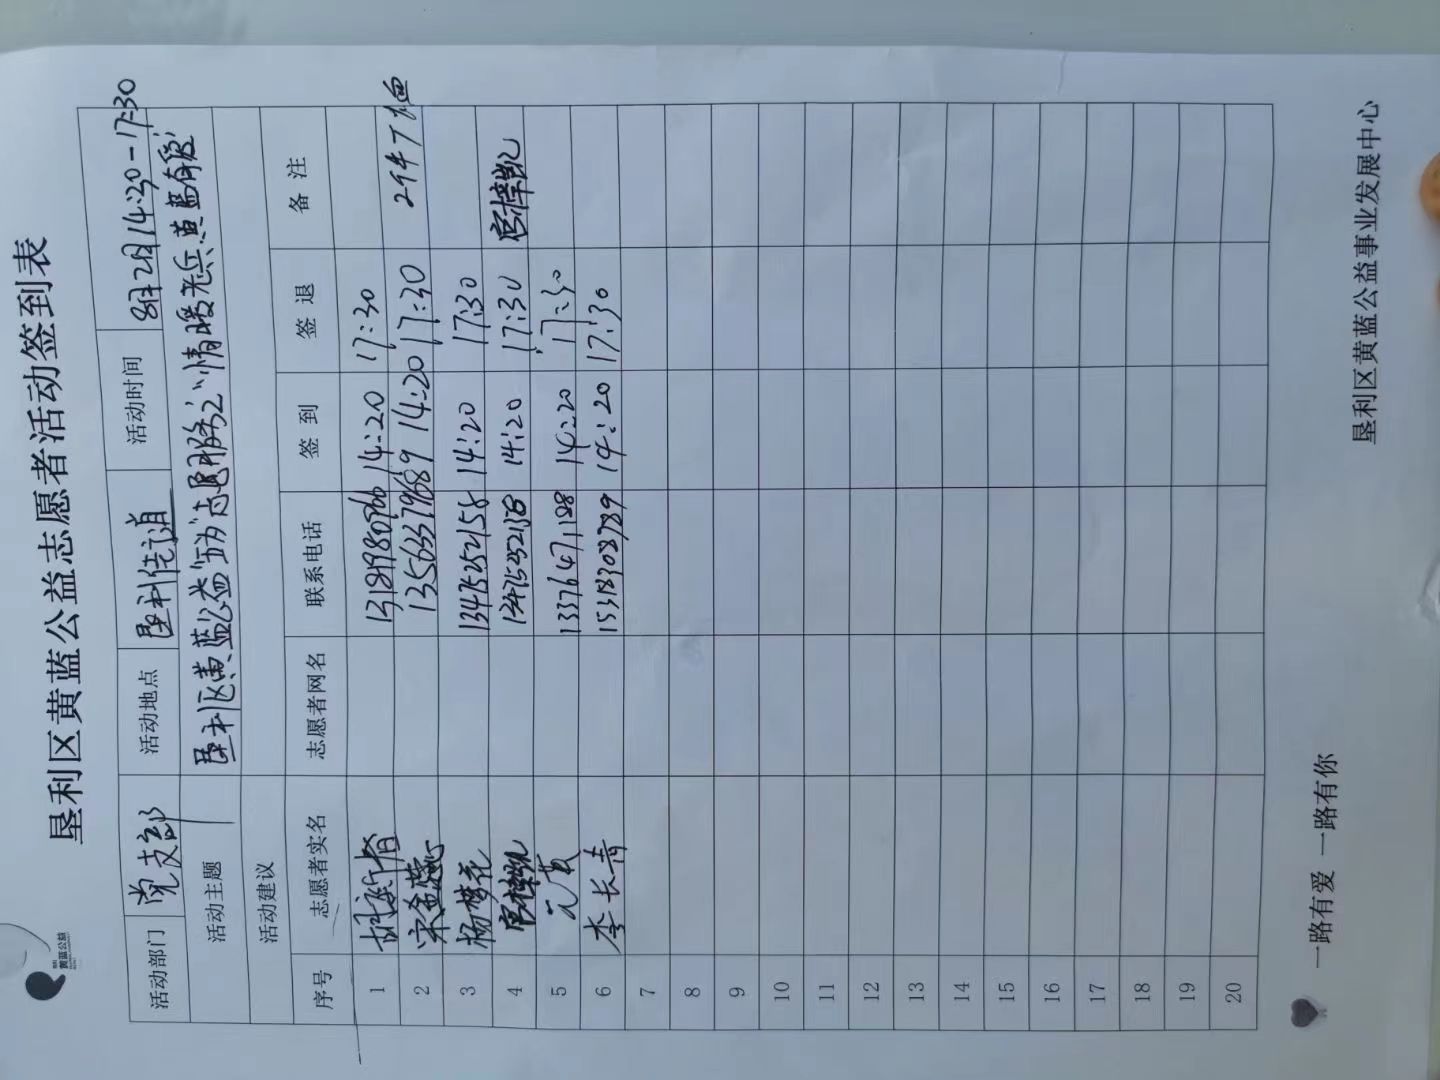 黄蓝公益
垦利区黄蓝公益志愿者活动签到表
活动部门 党支部 活动地点 垦利街道 活动时间 8月2日14:30-17:30
活动主题 垦利区黄蓝公益 志愿服务之"情暖老兵 黄蓝有爱"
活动建议
序号 志愿者实名 志愿者网名 联系电话 签到 签退 备注
1 14:20 17:30
2 宋金蕊 13563379689 14:20 17:30
3 杨梦花 13475252158 14:20 17:30
4 宫梓凯 13475252158 14:20 17:30 宫梓凯
5 13376471188 14:20 17:30
6 李长青 14:20 17:30
7
8
9
10
11
12
13
14
15
16
17
18
19
20
一路有爱 一路有你
垦利区黄蓝公益事业发展中心